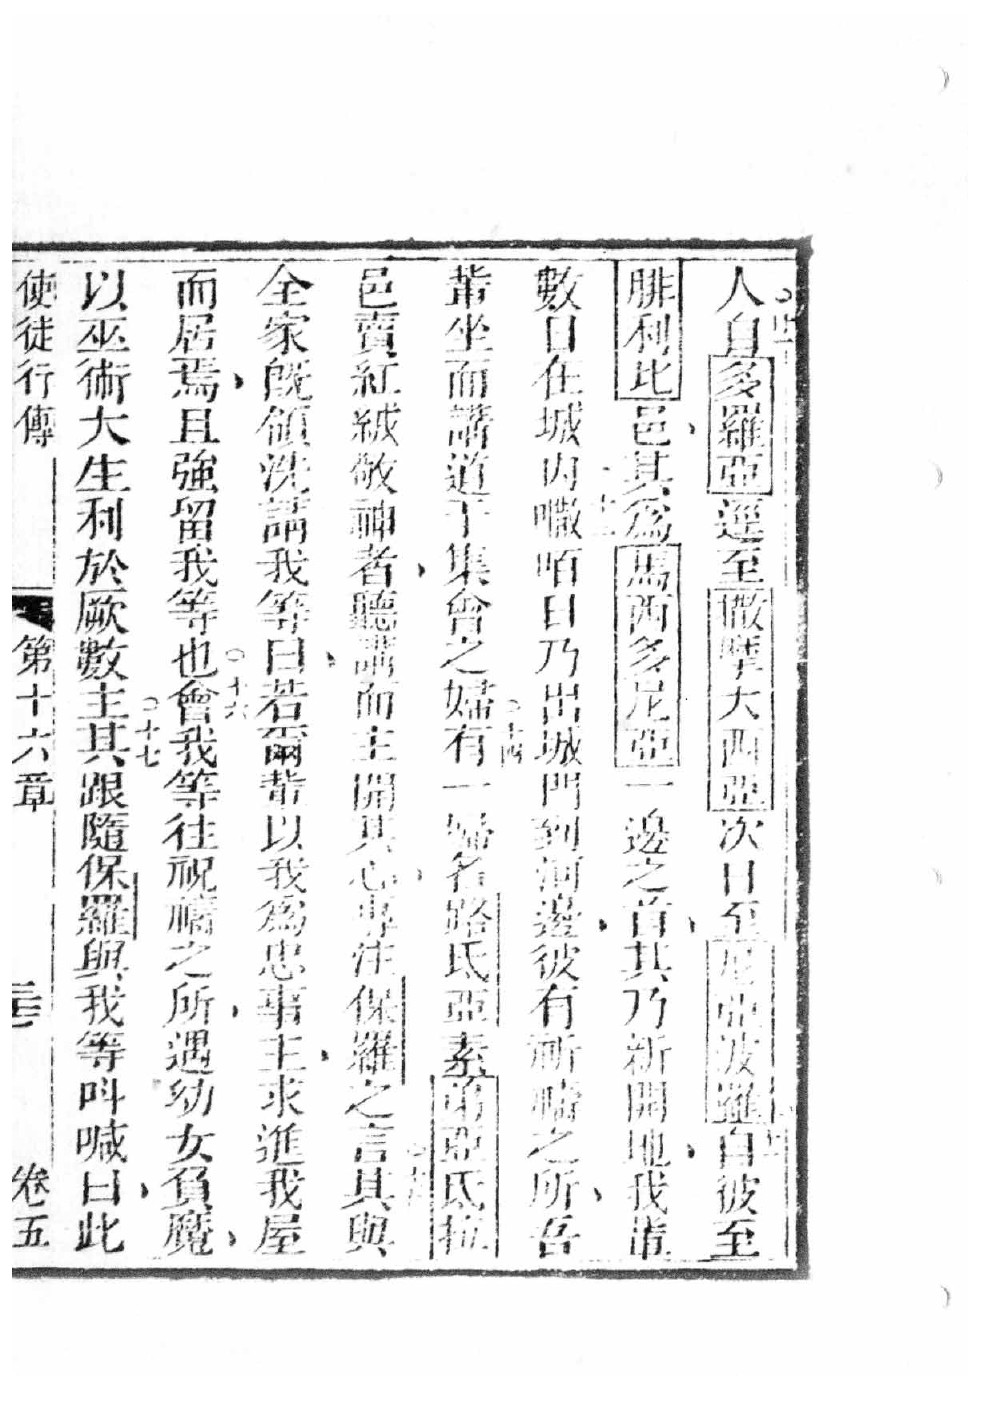 人自多羅亞逕至撒摩大西亞次日至尼亞波羅自彼至
腓利比邑其為馬西多尼亞一邊之首其乃新開地我輩
數日在城內嚈咟日乃出城門到河邊彼有祈禱之所吾
輩坐而講道于集會之婦有一婦名路氏亞素弟亞氏拉
邑賣紅絨敬神者聽講而主開其心專注保羅之言其與
全家既領洗請我等曰若爾輩以我為忠事主求進我屋
而居焉且強留我等也會我等往祝禱之所遇幼女負魔
以巫術大生利於厥數主其跟隨保羅與我等叫喊曰此
使徒行傳 第十六章 卷五
十四
十六
十七